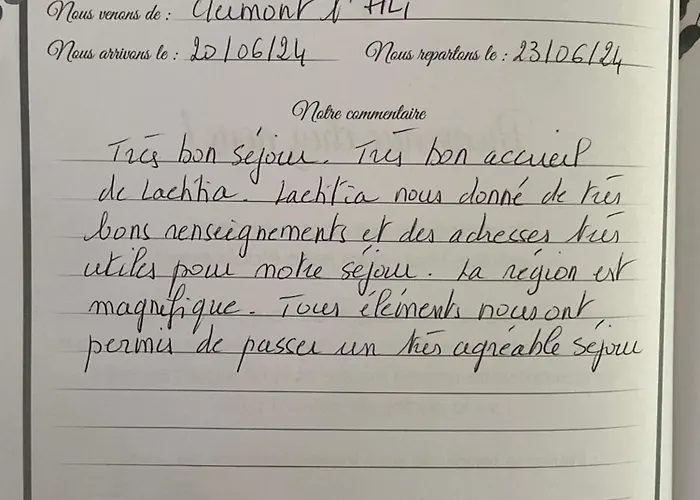 Nous venons de : Clermont l'
Nous arrivons le : 20/06/24 Nous repartons le : 23/06/24
Notre commentaire
Très bon séjour. Très bon accueil
de Laetitia. Laetitia nous donné de très
bons renseignements et des adresses très
utiles pour notre séjour. La région est
magnifique. Tous éléments nous ont
permis de passer un très agréable séjour